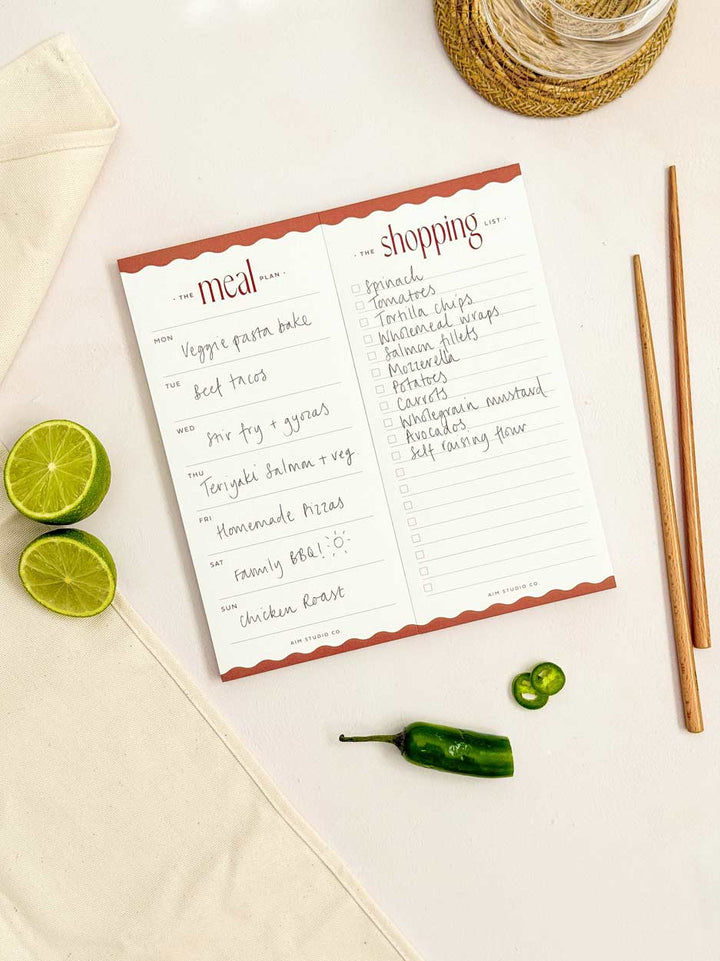 · THE meal PLAN ·
MON
Veggie pasta bake
TUE
Beef tacos
WED
Stir fry + gyozas
THU
Teriyaki Salmon + veg
FRI
Homemade Pizzas
SAT
Family BBQ!
SUN
Chicken Roast
AIM STUDIO CO.
· THE shopping LIST ·
Spinach
Tomatoes
Tortilla chips
Wholemeal wraps
Salmon fillets
Mozzerella
Potatoes
Carrots
Wholegrain mustard
Avocados
Self raising flour
AIM STUDIO CO.